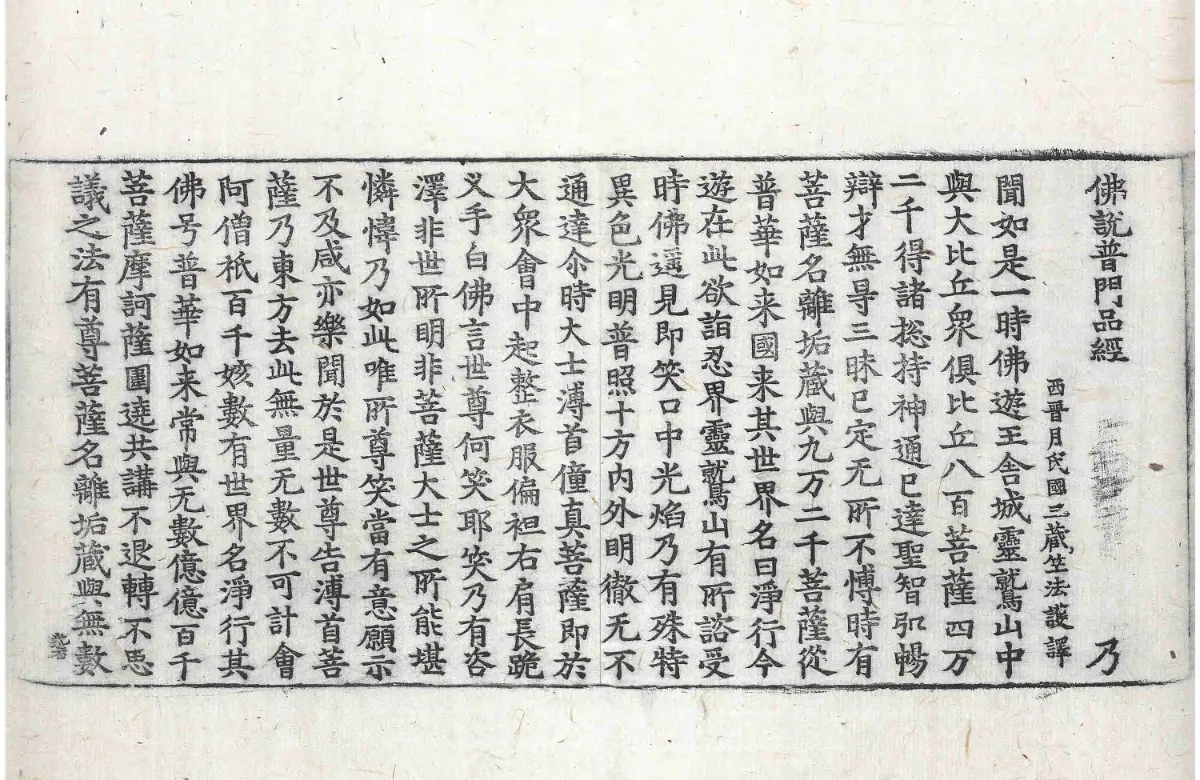 佛說普門品經 乃
西晉月氏國三藏竺法護譯
聞如是一時佛遊王舍城靈鷲山中
與大比丘衆俱比丘八百菩薩四万
二千得諸揔持神通已達聖智弘暢
辯才無㝵三昧已定无所不愽時有
菩薩名離垢藏與九万二千菩薩從
普華如来國来其世界名曰淨行今
遊在此欲詣忍界靈鷲山有所諮受
時佛遥見即笑口中光焰乃有殊特
異色光明普照十方内外明徹无不
通達尒時大士溥首僮真菩薩即於
大衆會中起整衣服偏袒右肩長跪
叉手白佛言世尊何笑耶笑乃有咨
澤非世所明非菩薩大士之所能堪
憐懧乃如此唯所尊笑當有意願示
不及咸亦樂聞於是世尊告溥首菩
薩乃東方去此無量无數不可計會
阿僧祇百千姟數有世界名淨行其
佛号普華如来常與无數億億百千
菩薩摩訶薩圍遶共講不退轉不思
議之法有尊菩薩名離垢藏與無數